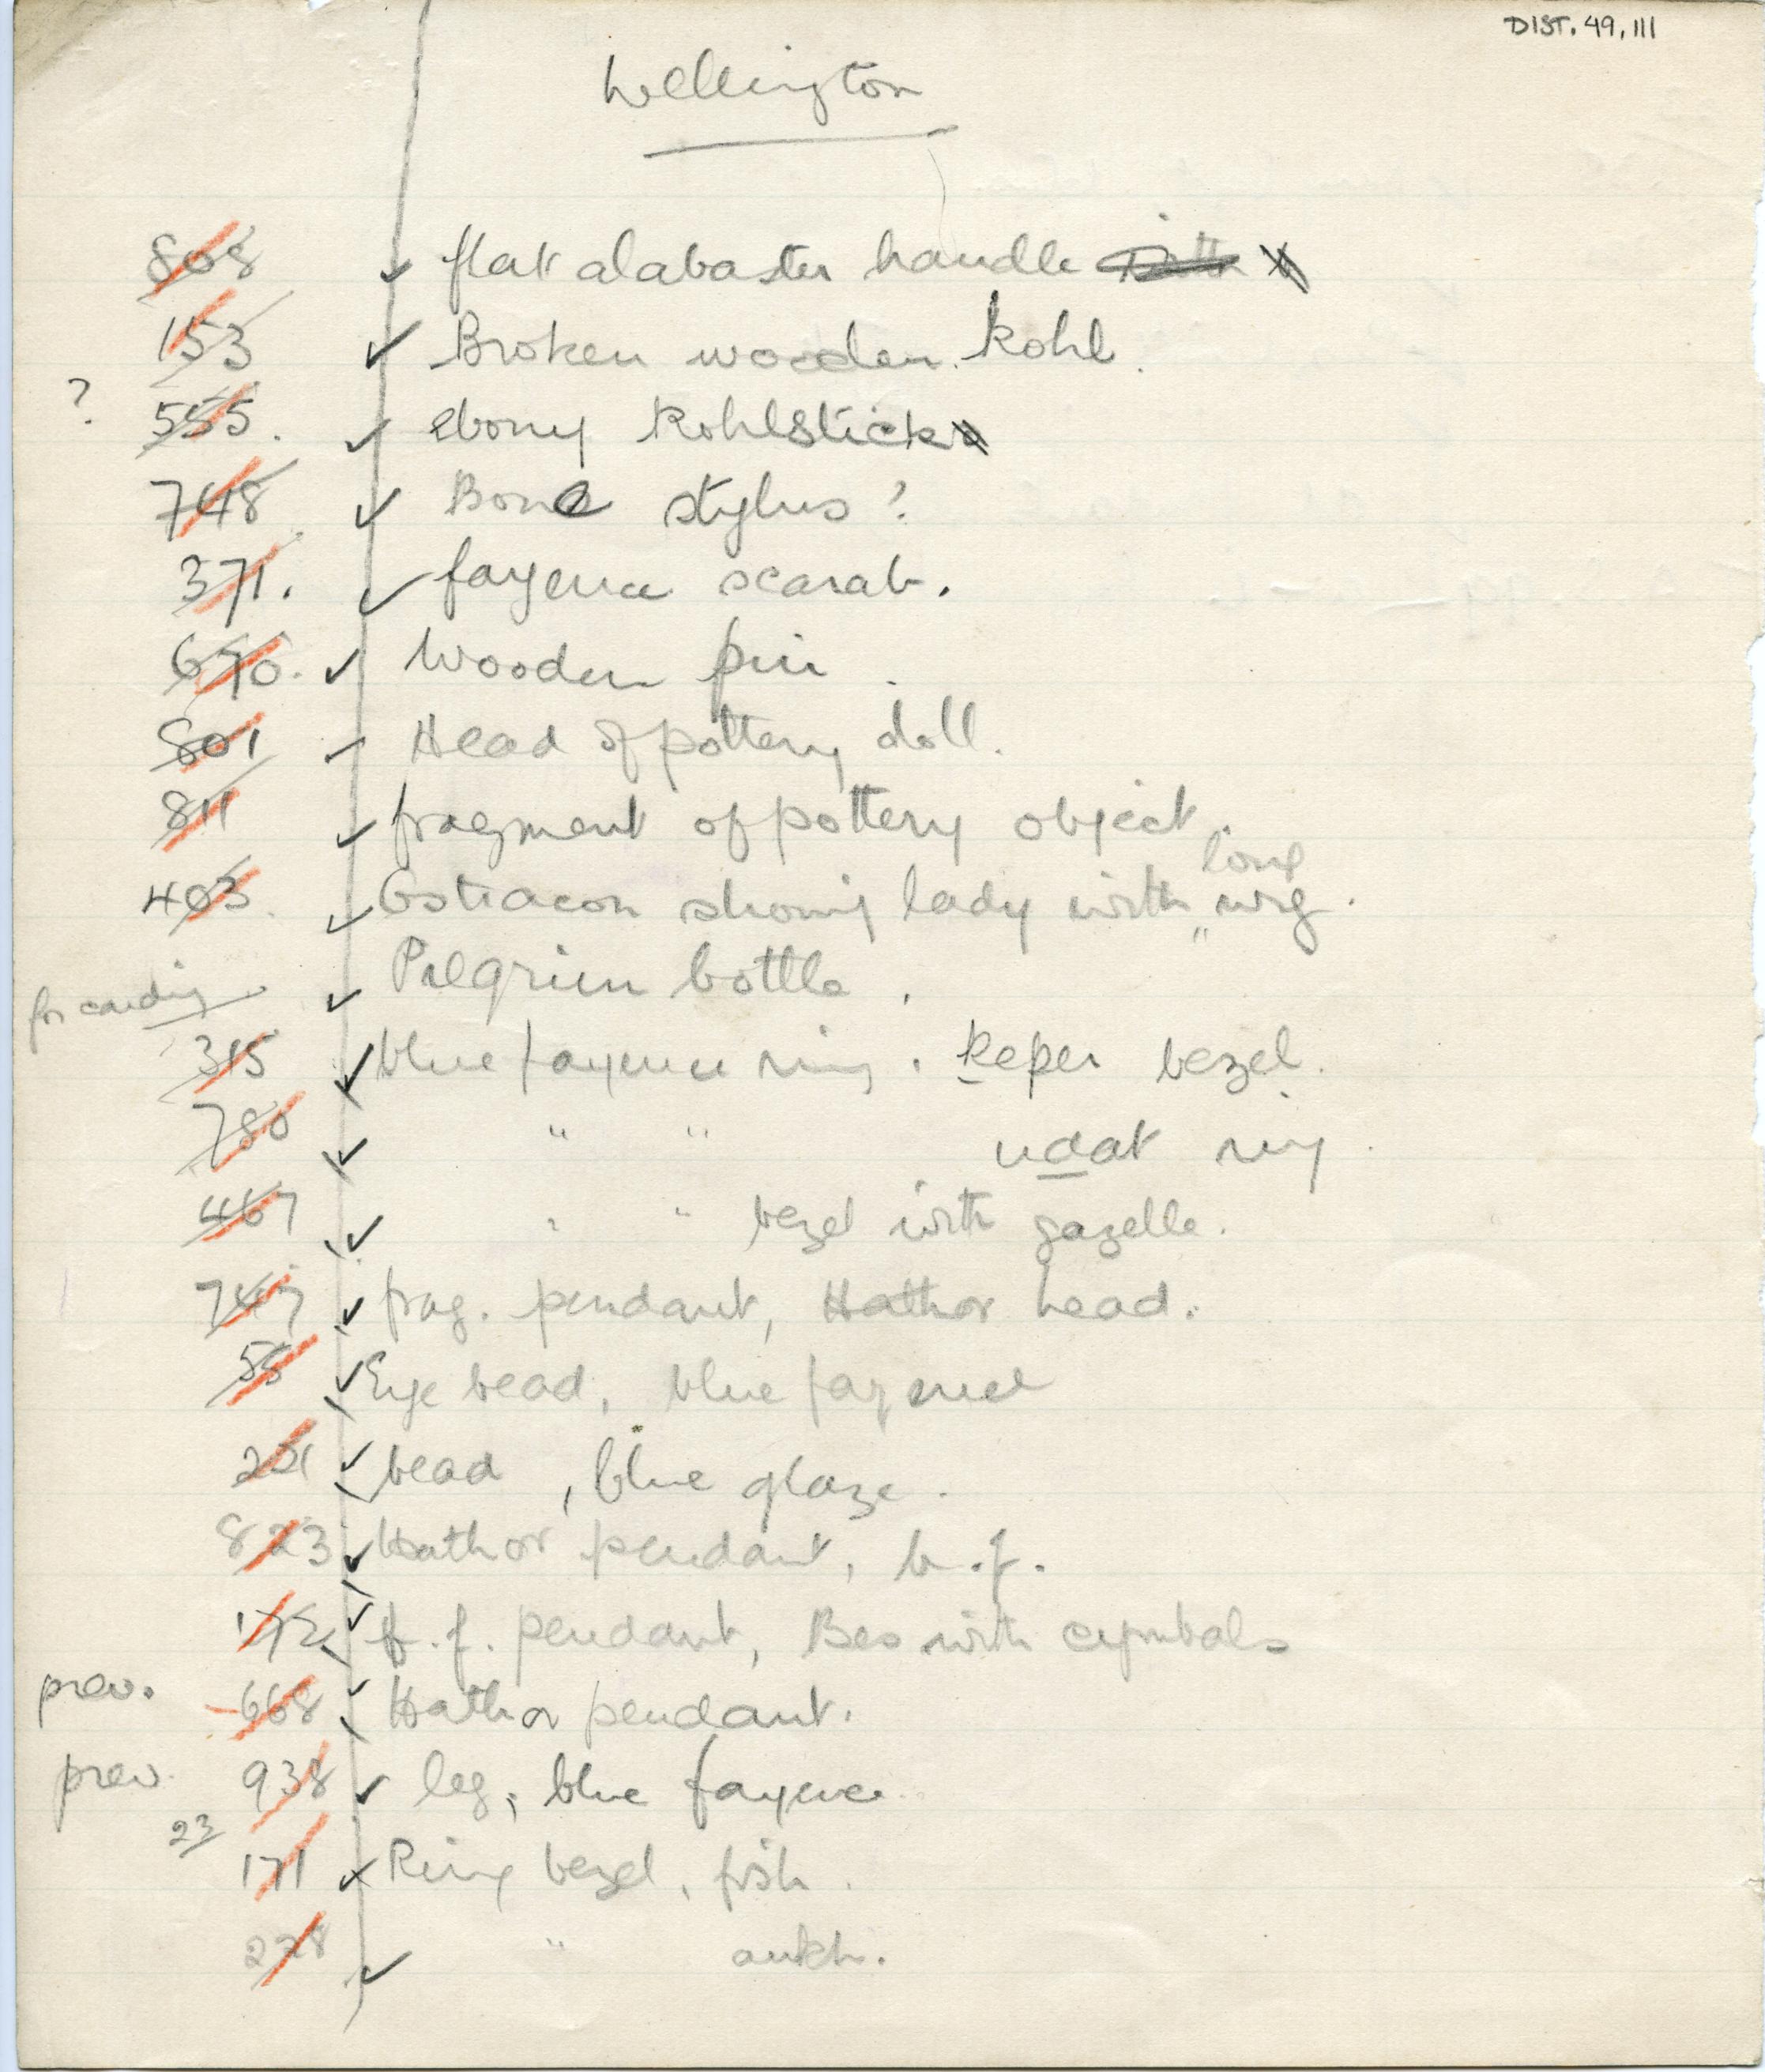 DIST. 49, 111
Wellington
808 ✓ flat alabaster handle
153 ✓ Broken wooden Kohl.
? 555. ✓ ebony Kohlstick
748 ✓ Bone stylus?
371. ✓ fayence scarab.
670. ✓ Wooden pin.
801 – Head of pottery doll.
811 ✓ fragment of pottery object.
403. ✓ Ostracon showing lady with long wig.
for carding ✓ Pilgrim bottle.
315 ✓ blue fayence ring. Keper bezel.
780 ✓ " " udat ring.
467 ✓ " " bezel with gazelle.
747 ✓ frag. pendant, Hathor head.
55 ✓ Eye bead, blue fayence
221 ✓ bead, blue glaze.
823 ✓ Hathor pendant, b.f.
172 ✓ b.f. pendant, Bes with cymbals
prev. 668 ✓ Hathor pendant.
prev. 938 ✓ leg, blue fayence.
23
171 ✓ Ring bezel, fish.
278 ✓ " ankh.